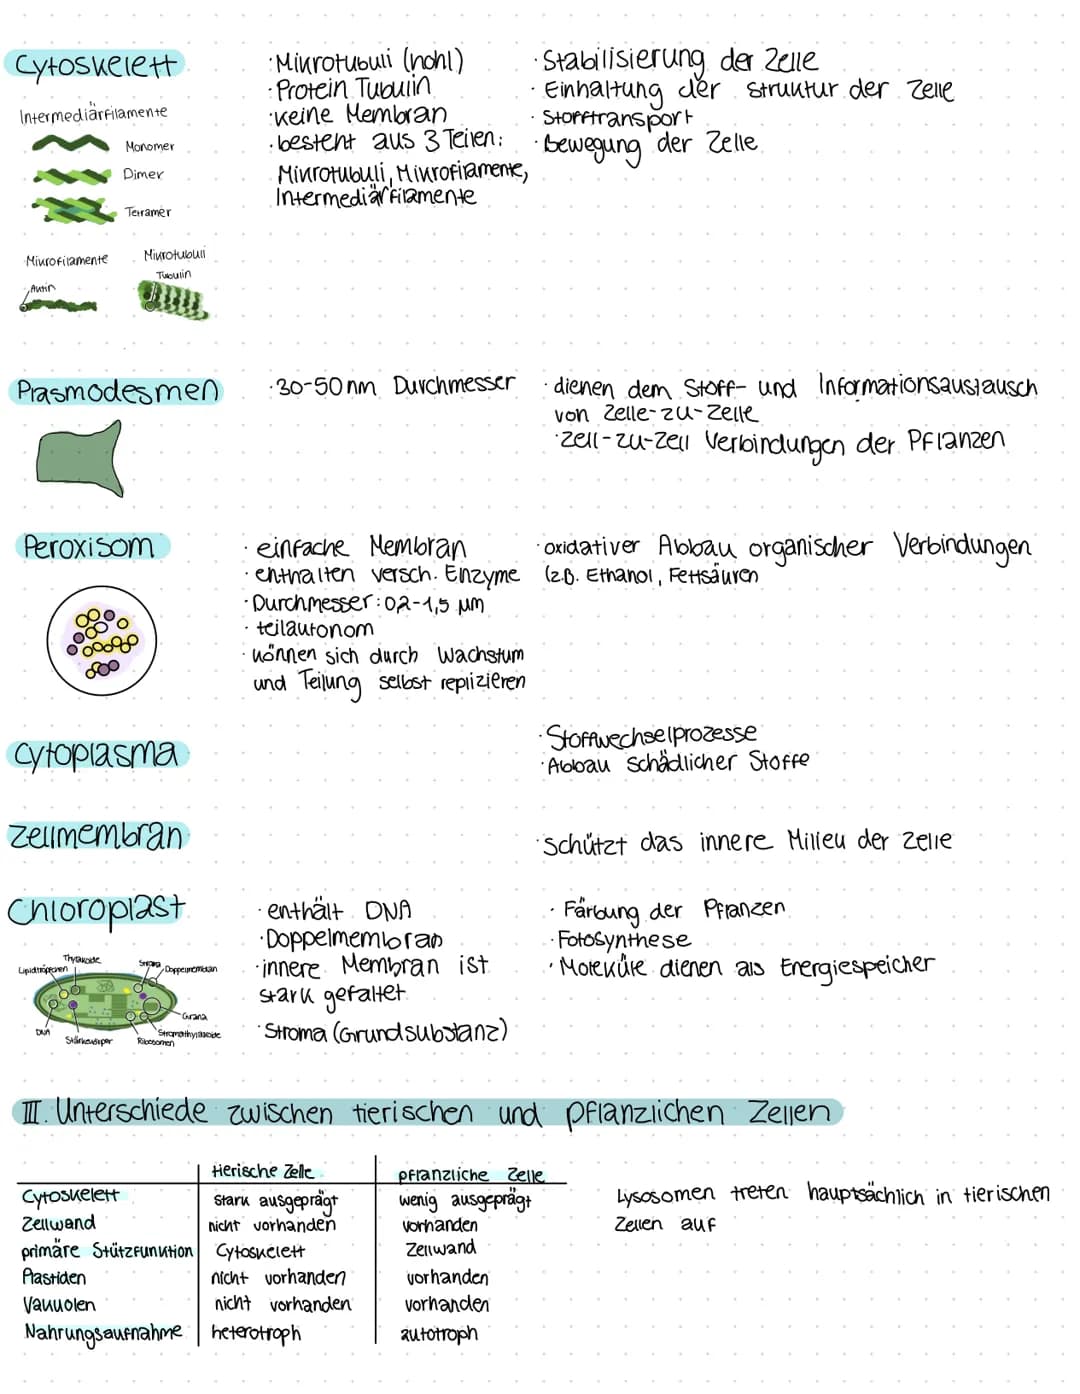 Cytoskelett
Intermediärfilamente
Monomer
Dimer
Tetramer
Mikrofilamente
Aktin
Mikrotubuli
Tubulin
· Mikrotubuli (hohl)
· Protein Tubulin
· keine Membran
· besteht aus 3 Teilen:
Mikrotubuli, Mikrofilamente,
Intermediärfilamente
· Stabilisierung der Zelle
· Einhaltung der Struktur der Zelle
· Stofftransport
· Bewegung der Zelle
Plasmodesmen
· 30-50 nm Durchmesser
· dienen dem Stoff- und Informationsaustausch
von Zelle-zu-Zelle
· Zell-zu-Zell Verbindungen der Pflanzen
Peroxisom
· einfache Membran
· enthalten versch. Enzyme
· Durchmesser: 0,2-1,5 µm
· teilautonom
· können sich durch Wachstum
und Teilung selbst replizieren
· oxidativer Abbau organischer Verbindungen
(z.B. Ethanol, Fettsäuren
Cytoplasma
· Stoffwechselprozesse
· Abbau schädlicher Stoffe
Zellmembran
· schützt das innere Milieu der Zelle
Chloroplast
Lipidtröpfchen
Thylakoide
Stroma
Doppelmembran
Grana
Stromathylakoide
Ribosomen
Stärkekörper
DNA
· enthält DNA
· Doppelmembran
· innere Membran ist
stark gefaltet
· Stroma (Grundsubstanz)
· Färbung der Pflanzen
· Fotosynthese
· Moleküle dienen als Energiespeicher
III. Unterschiede zwischen tierischen und pflanzlichen Zellen
tierische Zelle pflanzliche Zelle
Cytoskelett stark ausgeprägt wenig ausgeprägt
Zellwand nicht vorhanden vorhanden
primäre Stützfunktion Cytoskelett Zellwand
Plastiden nicht vorhanden vorhanden
Vakuolen nicht vorhanden vorhanden
Nahrungsaufnahme heterotroph autotroph
Lysosomen treten hauptsächlich in tierischen
Zellen auf